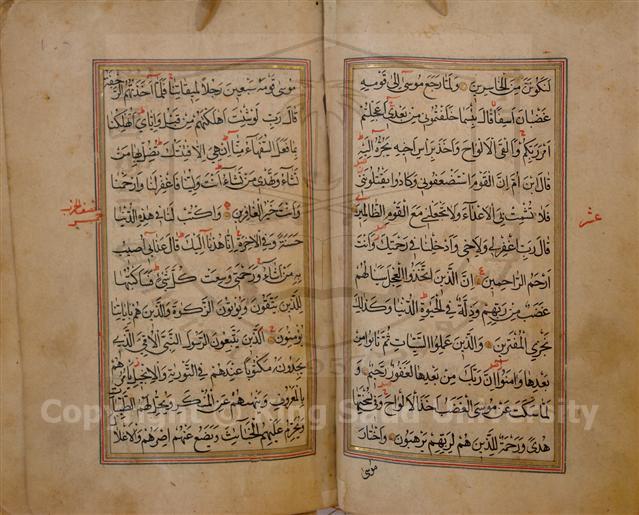 لَنَكُونَنَّ مِنَ الْخَاسِرِينَ وَلَمَّا رَجَعَ مُوسَى إِلَى قَوْمِهِ
غَضْبَانَ أَسِفًا قَالَ بِئْسَمَا خَلَفْتُمُونِي مِنْ بَعْدِي أَعَجِلْتُمْ
أَمْرَ رَبِّكُمْ وَأَلْقَى الْأَلْوَاحَ وَأَخَذَ بِرَأْسِ أَخِيهِ يَجُرُّهُ إِلَيْهِ
قَالَ ابْنَ أُمَّ إِنَّ الْقَوْمَ اسْتَضْعَفُونِي وَكَادُوا يَقْتُلُونَنِي
فَلَا تُشْمِتْ بِيَ الْأَعْدَاءَ وَلَا تَجْعَلْنِي مَعَ الْقَوْمِ الظَّالِمِينَ
قَالَ رَبِّ اغْفِرْ لِي وَلِأَخِي وَأَدْخِلْنَا فِي رَحْمَتِكَ وَأَنْتَ
أَرْحَمُ الرَّاحِمِينَ إِنَّ الَّذِينَ اتَّخَذُوا الْعِجْلَ سَيَنَالُهُمْ
غَضَبٌ مِنْ رَبِّهِمْ وَذِلَّةٌ فِي الْحَيٰوةِ الدُّنْيَا وَكَذَلِكَ
نَجْزِي الْمُفْتَرِينَ وَالَّذِينَ عَمِلُوا السَّيِّئَاتِ ثُمَّ تَابُوا مِنْ
بَعْدِهَا وَآمَنُوا إِنَّ رَبَّكَ مِنْ بَعْدِهَا لَغَفُورٌ رَحِيمٌ وَ
لَمَّا سَكَتَ عَنْ مُوسَى الْغَضَبُ أَخَذَ الْأَلْوَاحَ وَفِي نُسْخَتِهَا
هُدًى وَرَحْمَةٌ لِلَّذِينَ هُمْ لِرَبِّهِمْ يَرْهَبُونَ وَاخْتَارَ
موسى
عشر
مُوسَى قَوْمَهُ سَبْعِينَ رَجُلًا لِمِيقَاتِنَا فَلَمَّا أَخَذَتْهُمُ الرَّجْفَةُ
قَالَ رَبِّ لَوْ شِئْتَ أَهْلَكْتَهُمْ مِنْ قَبْلُ وَإِيَّايَ أَتُهْلِكُنَا
بِمَا فَعَلَ السُّفَهَاءُ مِنَّا إِنْ هِيَ إِلَّا فِتْنَتُكَ تُضِلُّ بِهَا مَنْ
تَشَاءُ وَتَهْدِي مَنْ تَشَاءُ أَنْتَ وَلِيُّنَا فَاغْفِرْ لَنَا وَارْحَمْنَا
وَأَنْتَ خَيْرُ الْغَافِرِينَ وَاكْتُبْ لَنَا فِي هَذِهِ الدُّنْيَا
حَسَنَةً وَفِي الْآخِرَةِ إِنَّا هُدْنَا إِلَيْكَ قَالَ عَذَابِي أُصِيبُ
بِهِ مَنْ أَشَاءُ وَرَحْمَتِي وَسِعَتْ كُلَّ شَيْءٍ فَسَأَكْتُبُهَا
لِلَّذِينَ يَتَّقُونَ وَيُؤْتُونَ الزَّكٰوةَ وَالَّذِينَ هُمْ بِآيَاتِنَا
يُؤْمِنُونَ الَّذِينَ يَتَّبِعُونَ الرَّسُولَ النَّبِيَّ الْأُمِّيَّ الَّذِي
يَجِدُونَهُ مَكْتُوبًا عِنْدَهُمْ فِي التَّوْرٰيةِ وَالْإِنْجِيلِ يَأْمُرُهُمْ
بِالْمَعْرُوفِ وَيَنْهٰيهُمْ عَنِ الْمُنْكَرِ وَيُحِلُّ لَهُمُ الطَّيِّبَاتِ
وَيُحَرِّمُ عَلَيْهِمُ الْخَبَائِثَ وَيَضَعُ عَنْهُمْ إِصْرَهُمْ وَالْأَغْلَالَ
Copyright © King Saud University